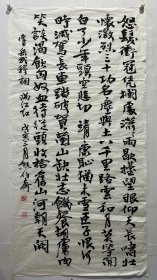 怒髮衝冠凭闌處瀟瀟雨歇抬望眼仰天長嘯壯
懷激烈三十功名塵與土八千里路雲和月莫等閒
白了少年頭空悲切靖康恥猶未雪臣子恨何
時滅駕長車踏破賀蘭山缺壯志飢餐胡虜肉
笑談渴飲匈奴血待從頭收拾舊山河朝天闕
岳飛詞滿江紅 三月